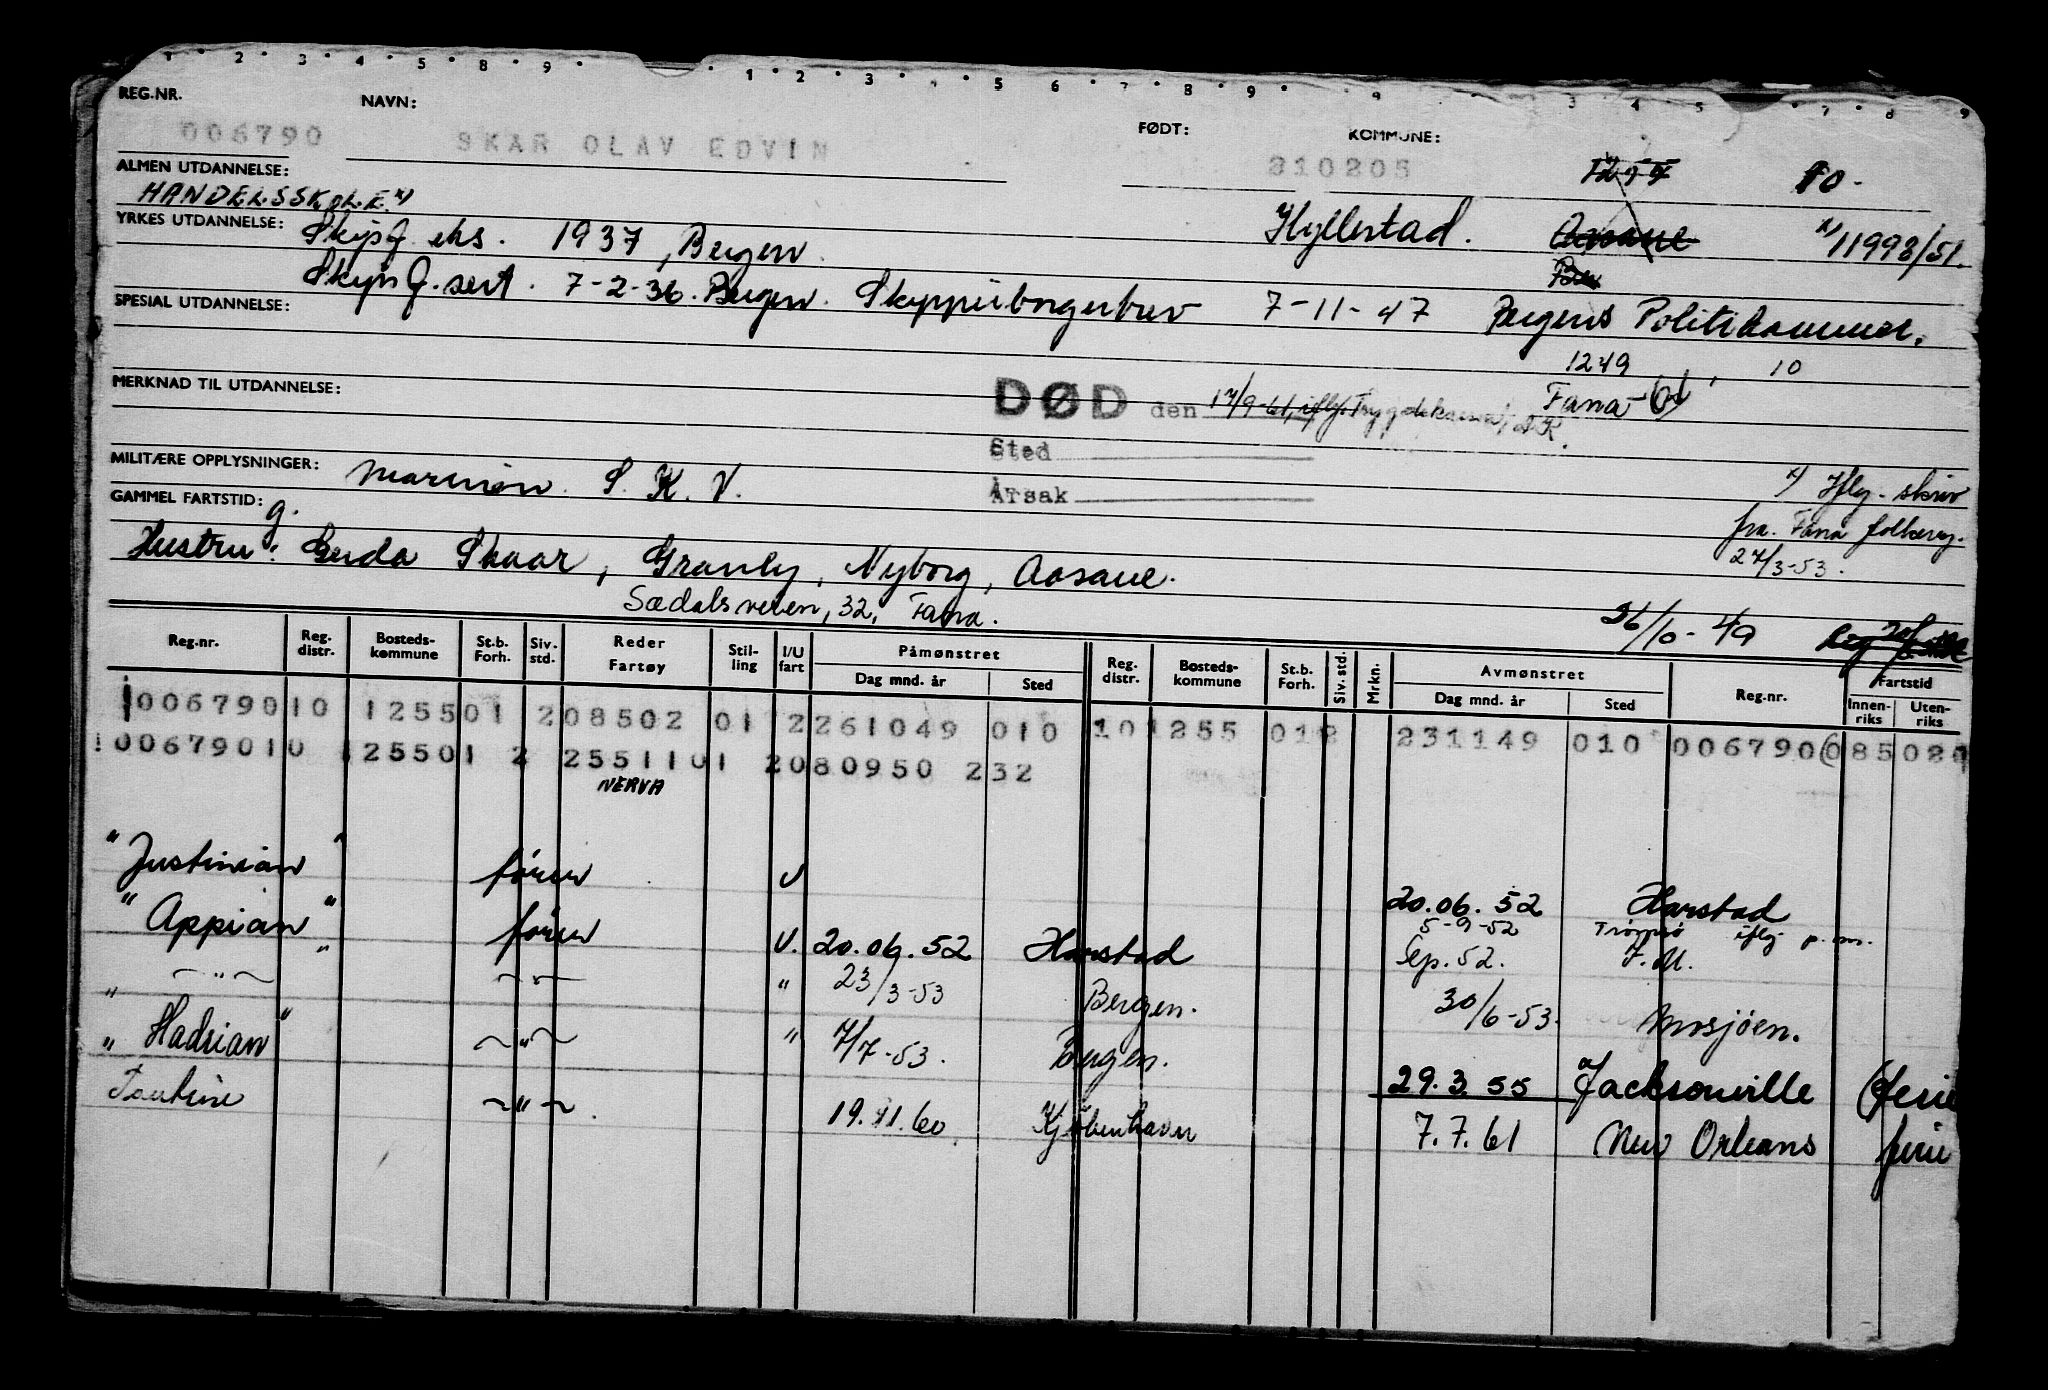 1 2 3 4 5 8 9 1 2 3 4 5 6 7 8 9 3 4 5 7 8 9
REG.NR. NAVN: FØDT: KOMMUNE:
006790 SKAR OLAV EDVIN 210205 10-
ALMEN UTDANNELSE: HANDELSSKOLE. x)
YRKES UTDANNELSE: Skipsf. eks. 1937, Bergen. Hyllestad. Aasane x) 11998/51.
Skipsf. sert. 7-2-36. Bergen. Skipperborgerbrev 7-11-47 Bergens Politikammer.
SPESIAL UTDANNELSE:
1249, 10
MERKNAD TIL UTDANNELSE: DØD den 17/9-61, iflg. Trygdekassa, Fana-61
Sted
MILITÆRE OPPLYSNINGER: Marinen. S. K. V. Årsak x) Iflg. skriv
GAMMEL FARTSTID: fra. Fana folkereg.
27/3-53.
Hustru: Gerda Skaar, Granly, Nyborg, Aasane.
Sædalsveien, 32, Fana. 26/10-49
Reg.nr. Reg. distr. Bosteds-kommune St.b. Forh. Siv. std. Reder Fartøy Stil-ling I/U fart Påmønstret Dag mnd. år Sted Reg. distr. Bosteds-kommune St.b. Forh. Siv. std. Mrkn. Avmønstret Dag mnd. år Sted Reg.nr. Fartstid Innen-riks Uten-riks
00679010 125501 208502 01 2261049 010 101255 012 231149 010 006790 085028
00679010 125501 2 25511 01 2080950 232
NERVA
"Justinian" fører U 20.06.52 Harstad
"Appian" fører U. 20.06.52 Harstad 5-9-52 Tromsø iflg. p.m.
Sep. 52. F.M.
" — " — — " — " 23/3-53 Bergen. 30/6-53. Mosjøen.
"Hadrian" — " — " 7/7-53. Bergen. 29.3.55 Jacksonville (ferie
— " — 19.11.60. Kjöbenhavn 7.7.61 New Orleans ferie